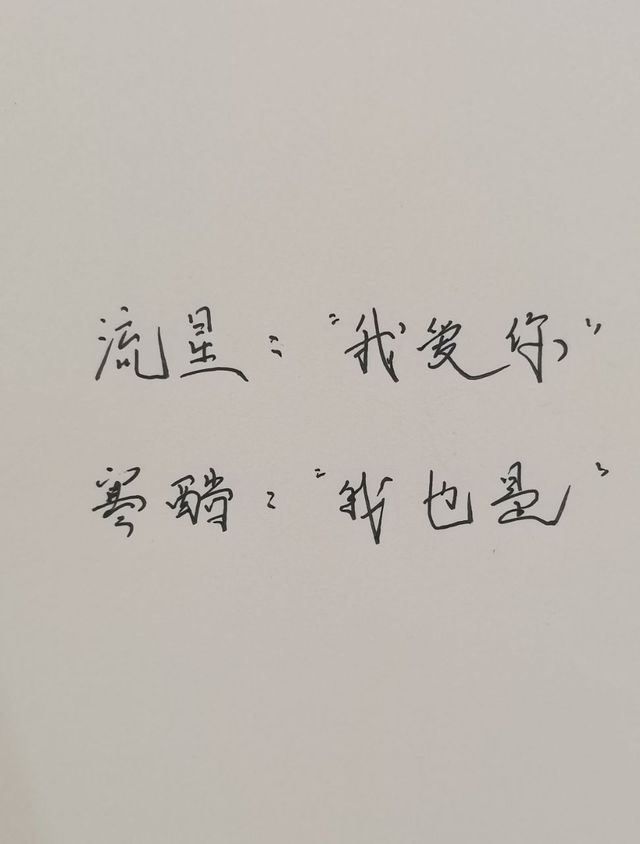 流星："我爱你"
："我也是"